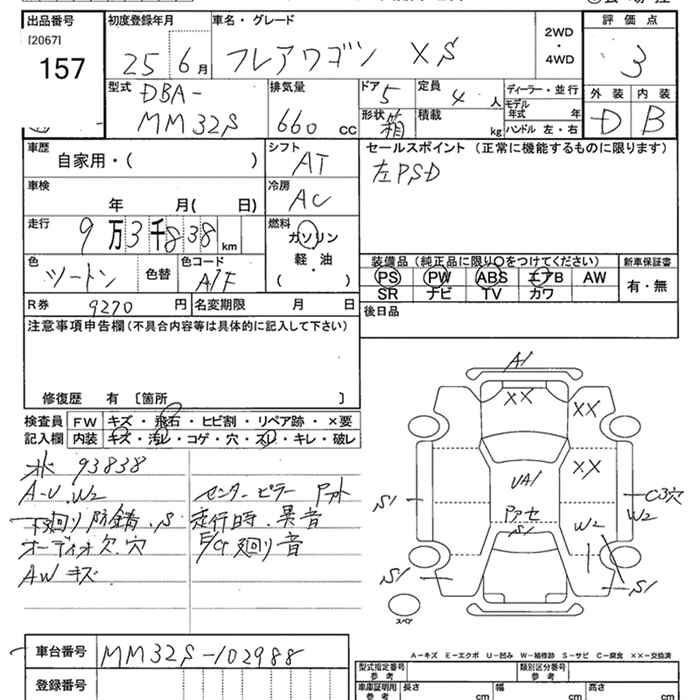 出品番号 初度登録年月 車名・グレード 2WD・4WD 評価点
[2067]
157 25 6月 フレアワゴン XS 3
型式 DBA-MM32S 排気量 660 cc ドア 5 定員 4人 ディーラー・並行 外装 内装
形状 箱 積載 kg モデル年式 年 D B
ハンドル 左・右
車歴 自家用・( ) シフト AT セールスポイント (正常に機能するものに限ります)
左PSD
車検 年 月( 日) 冷房 AC
走行 9万3千838km 燃料 ガソリン
軽・油
( )
色 ツートン 色替 色コード A7F 装備品 (純正品に限り○をつけてください) 新車保証書
PS PW ABS エアB AW 有・無
SR ナビ TV カワ
R券 9270円 名変期限 月 日 後日品
注意事項申告欄 (不具合内容等は具体的に記入して下さい)
修復歴 有 [箇所 ]
検査員 FW キズ・飛石・ヒビ割・リペア跡・×要
記入欄 内装 キズ・汚レ・コゲ・穴・スレ・キレ・破レ
93838
A-U.W2 センターピラー
下廻り防錆.S 走行時.異音
オーディオ欠.穴 廻り音
AWキズ
A1
XX XX
XX
UA1
S1 C3穴
W2
S1
W2
S1 S1
スペア
車台番号 MM32S-102988
A-キズ E-エクボ U-凹み W-補修跡 S-サビ C-腐食 XX-交換済
登録番号 型式指定番号 参考 類別区分番号 参考
車庫証明用 参考 長さ cm 幅 cm 高さ cm